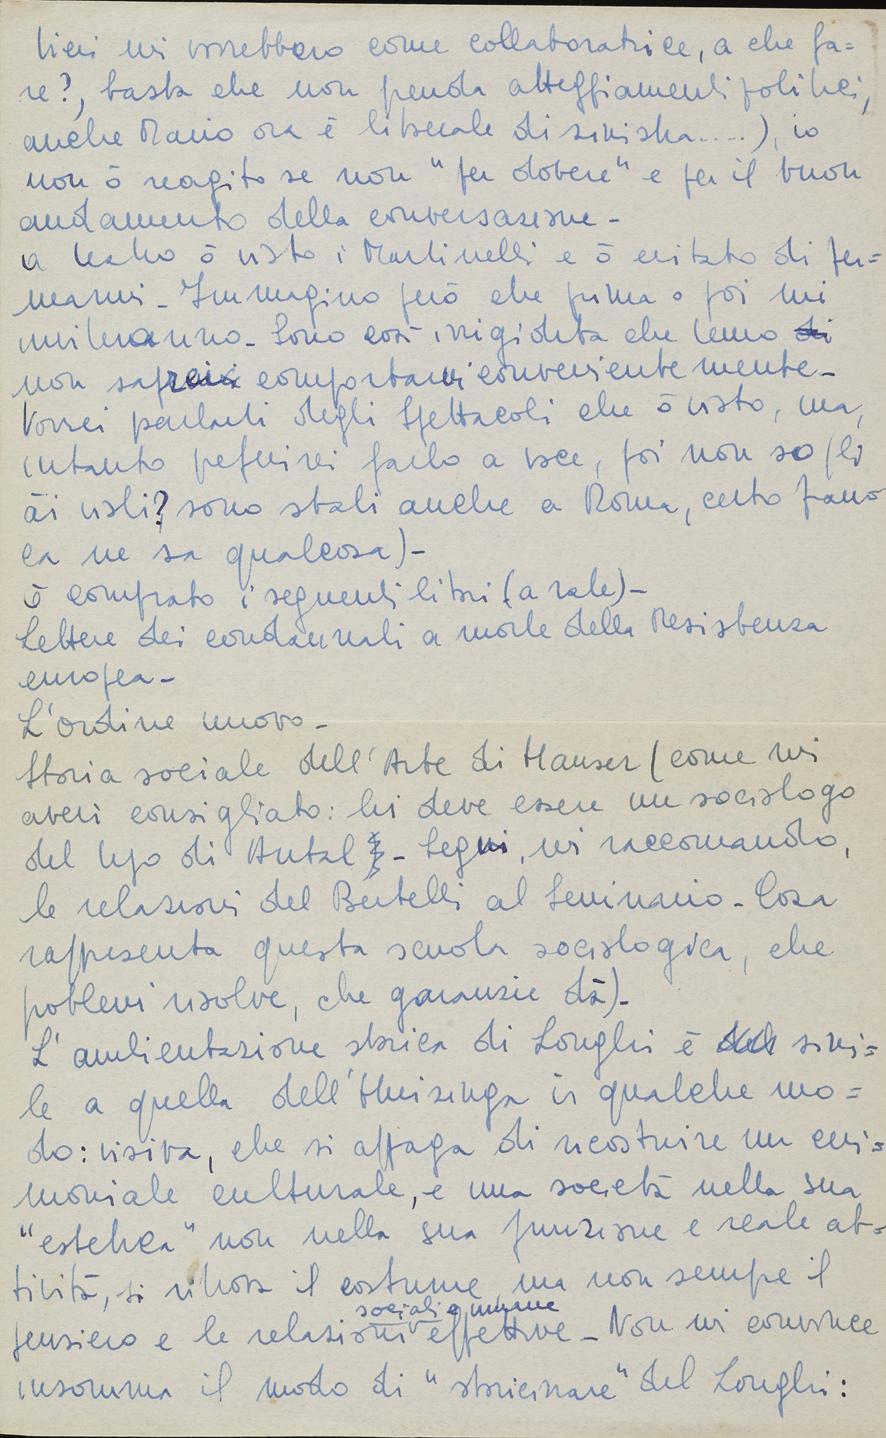 tici mi vorrebbero come collaboratrice, a che fa=
re?, basta che non prenda atteggiamenti politici,
anche Mario ora è liberale di sinistra.....), io
non ò reagito se non "per dovere" e per il buon
andamento della conversazione -
a teatro ò visto i Martinelli e ò evitato di fer=
marmi - Immagino però che prima o poi mi
inviteranno - Sono così irrigidita che temo di
non saprei comportarmi convenientemente -
Vorrei parlarti degli spettacoli che ò visto, ma,
intanto preferirei farlo a voce, poi non so (li
ài visti? sono stati anche a Roma, certo fran
ca ne sa qualcosa) -
ò comprato i seguenti libri (a rate) -
Lettere dei condannati a morte della Resistenza
europea -
L'ordine nuovo -
Storia sociale dell'Arte di Hauser (come mi
avevi consigliato: lui deve essere un sociologo
del tipo di Antal - Segui, mi raccomando,
le relazioni del Bertelli al Seminario - Cosa
rappresenta questa scuola sociologica, che
problemi risolve, che garanzie dà) -
L'ambientazione storica di Longhi è simi=
le a quella dell'Huizinga in qualche mo=
do: visiva, che si appaga di ricostruire un ceri=
moniale culturale, e una società nella sua
"estetica" non nella sua funzione e reale at=
tività, si ritrova il costume, ma non sempre il
pensiero e le relazioni sociali e umane effettive - Non mi convince
insomma il modo di "storicizzare" del Longhi: